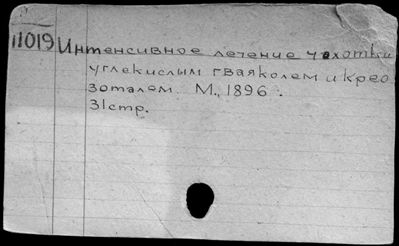 11019 Интенсивное лечение чахотки
углекислым гваяколем и крео
зоталем. М., 1896.
31 стр.